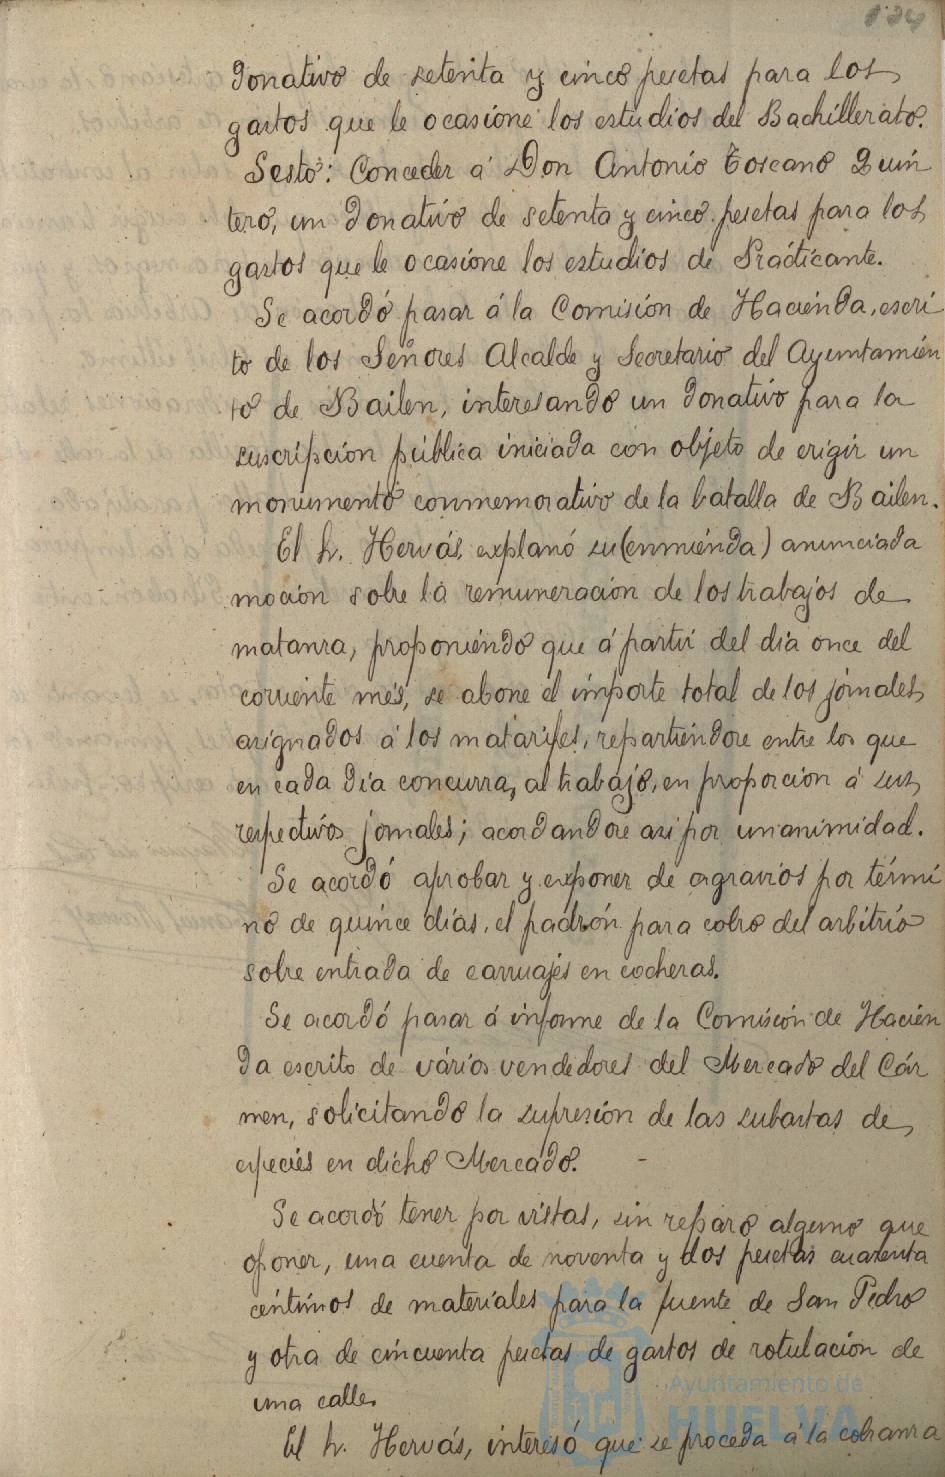 134
donativo de setenta y cinco pesetas para los
gastos que le ocasione los estudios del Bachillerato.
Sesto: Conceder á Don Antonio Toscano Quin
tero, un donativo de setenta y cinco pesetas para los
gastos que le ocasione los estudios de Practicante.
Se acordó pasar á la Comisión de Hacienda, escri
to de los Señores Alcalde y Secretario del Ayuntamien
to de Bailen, interesando un donativo para la
suscripcion pública iniciada con objeto de erigir un
monumento conmemorativo de la batalla de Bailen.
El Sr. Hervás, explanó su (enmienda) anunciada
mocion sobre la remuneración de los trabajos de
matanza, proponiendo que á partir del dia once del
corriente mes, se abone el importe total de los jornales
asignados á los matarifes, repartiendose entre los que
en cada dia concurra, al trabajo, en proporcion á sus
respectivos jornales; acordandose asi por unanimidad.
Se acordó aprobar y exponer de agravios por térmi
no de quince días, el padrón para cobro del arbitrio
sobre entrada de carruajes en cocheras.
Se acordó pasar á informe de la Comision de Hacien
da escrito de vários vendedores del Mercado del Cár
men, solicitando la supresión de las subastas de
especies en dicho Mercado. -
Se acordó tener por vistas, sin reparo alguno que
oponer, una cuenta de noventa y dos pesetas cuarenta
centimos de materiales para la fuente de San Pedro
y otra de cincuenta pesetas de gastos de rotulación de
una calle.
El Sr. Hervás, interesó que se proceda á la cobranza
Ayuntamiento de
HUELVA